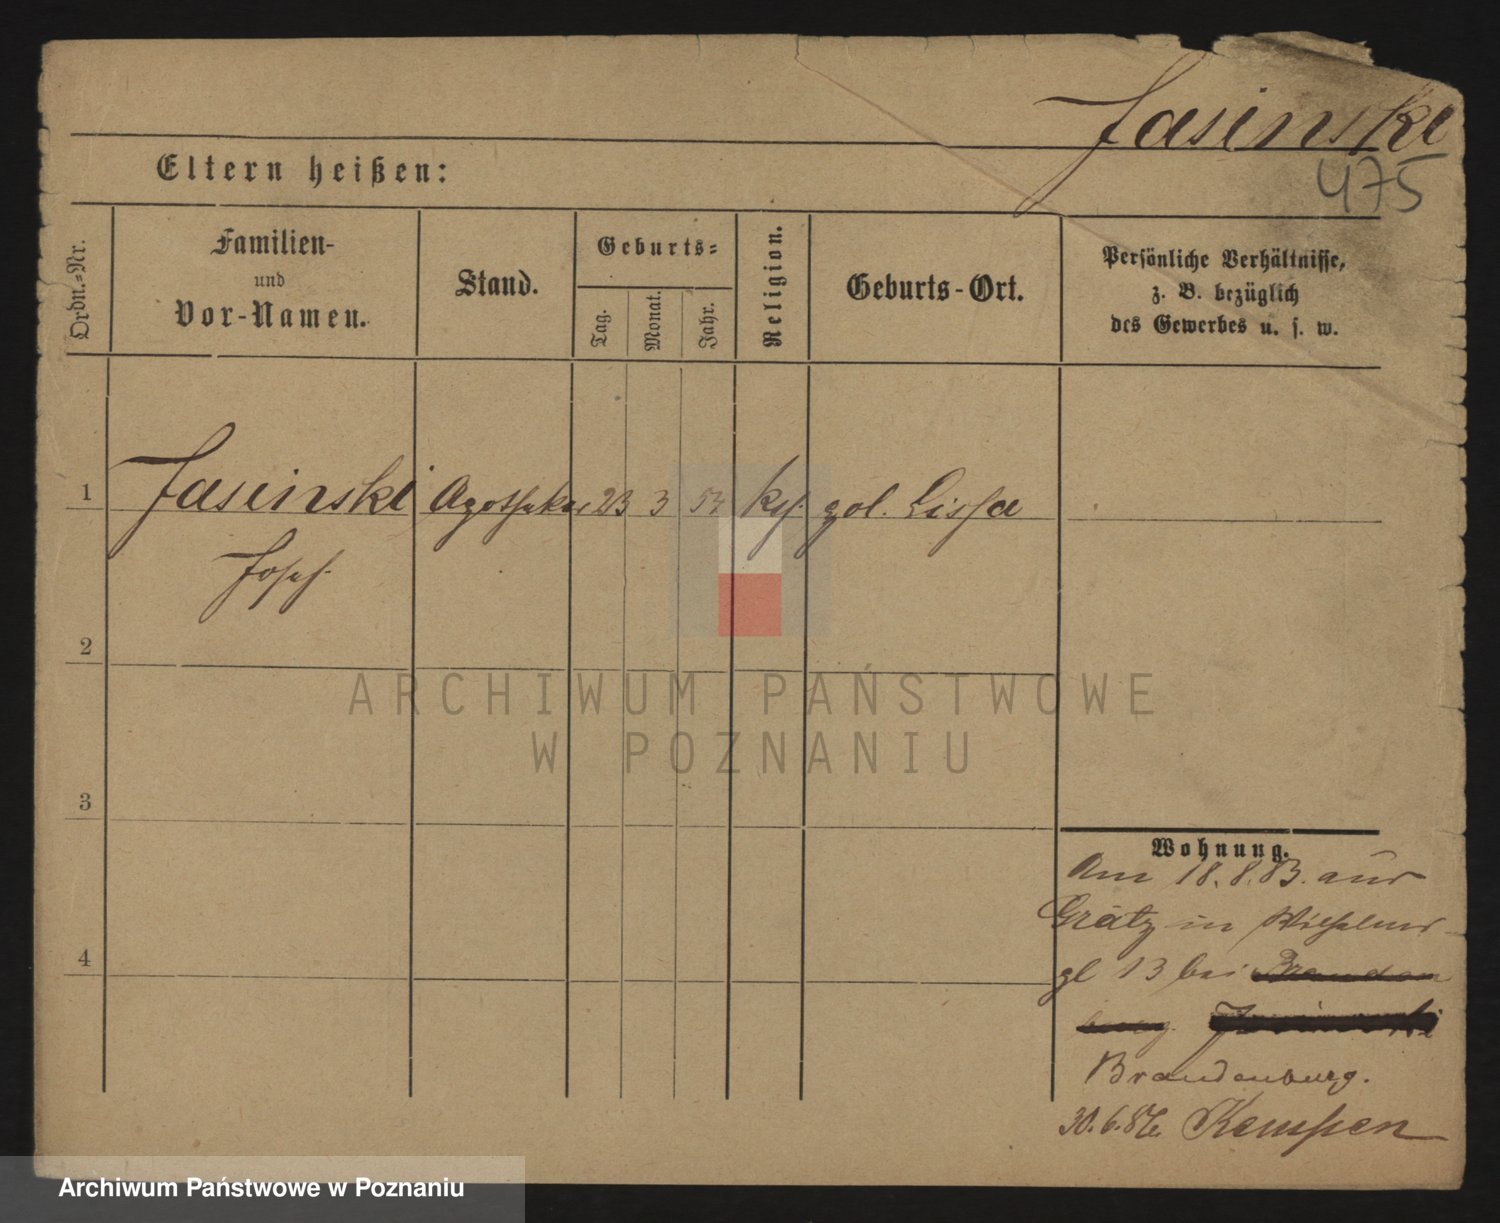 Jasinski
475
Eltern heißen:
Ordn.-Nr.
Familien-
und
Vor-Namen.
Stand.
Geburts-
Tag.
Monat.
Jahr.
Religion.
Geburts-Ort.
Persönliche Verhältnisse,
z. B. bezüglich
des Gewerbes u. s. w.
1 Jasinski Apotheker 23 3 kth. pol. Lissa
Josef
2
3
4
ARCHIWUM PAŃSTWOWE
W POZNANIU
Wohnung.
Am 18.8.83. aus
Grätz in Wilhelms-
pl 13 bei Branden
burg. Jasinski
Brandenburg.
30.6.86. Kempen
Archiwum Państwowe w Poznaniu